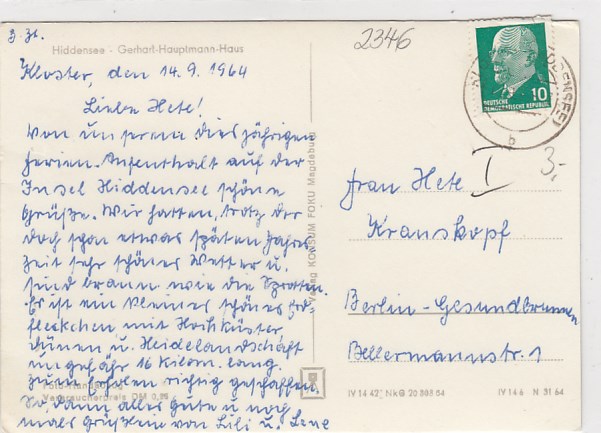 3 Zt.
Hiddensee - Gerhart-Hauptmann-Haus
Kloster, den 14.9.1964
Liebe Hete!
Von unserem diesjährigen
Ferien-Aufenthalt auf der
Insel Hiddensee schöne
Grüße. Wir hatten, trotz der
doch schon etwas späten Jahres
zeit sehr schönes Wetter u.
sind braun wie die Sprotten.
Es ist ein kleines schönes Erd-
fleckchen mit Hochküste,
Dünen u. Heidelandschaft
ungefähr 16 Kilom. lang.
Zum erholen richtig geschaffen.
So, dann alles gute u. noch
mals Grüße von Lili u. Lene
Verbraucherpreis DM 0,25
Verlag KONSUM FOKU Magdeburg
2346
DEUTSCHE
DEMOKRATISCHE REPUBLIK
10
b
3,-
I
Frau Hete
Kranskopf
Berlin-Gesundbrunnen
Bellermannstr. 1
IV 14 42, NkG 20 868 64
IV 14 6 N 31 64